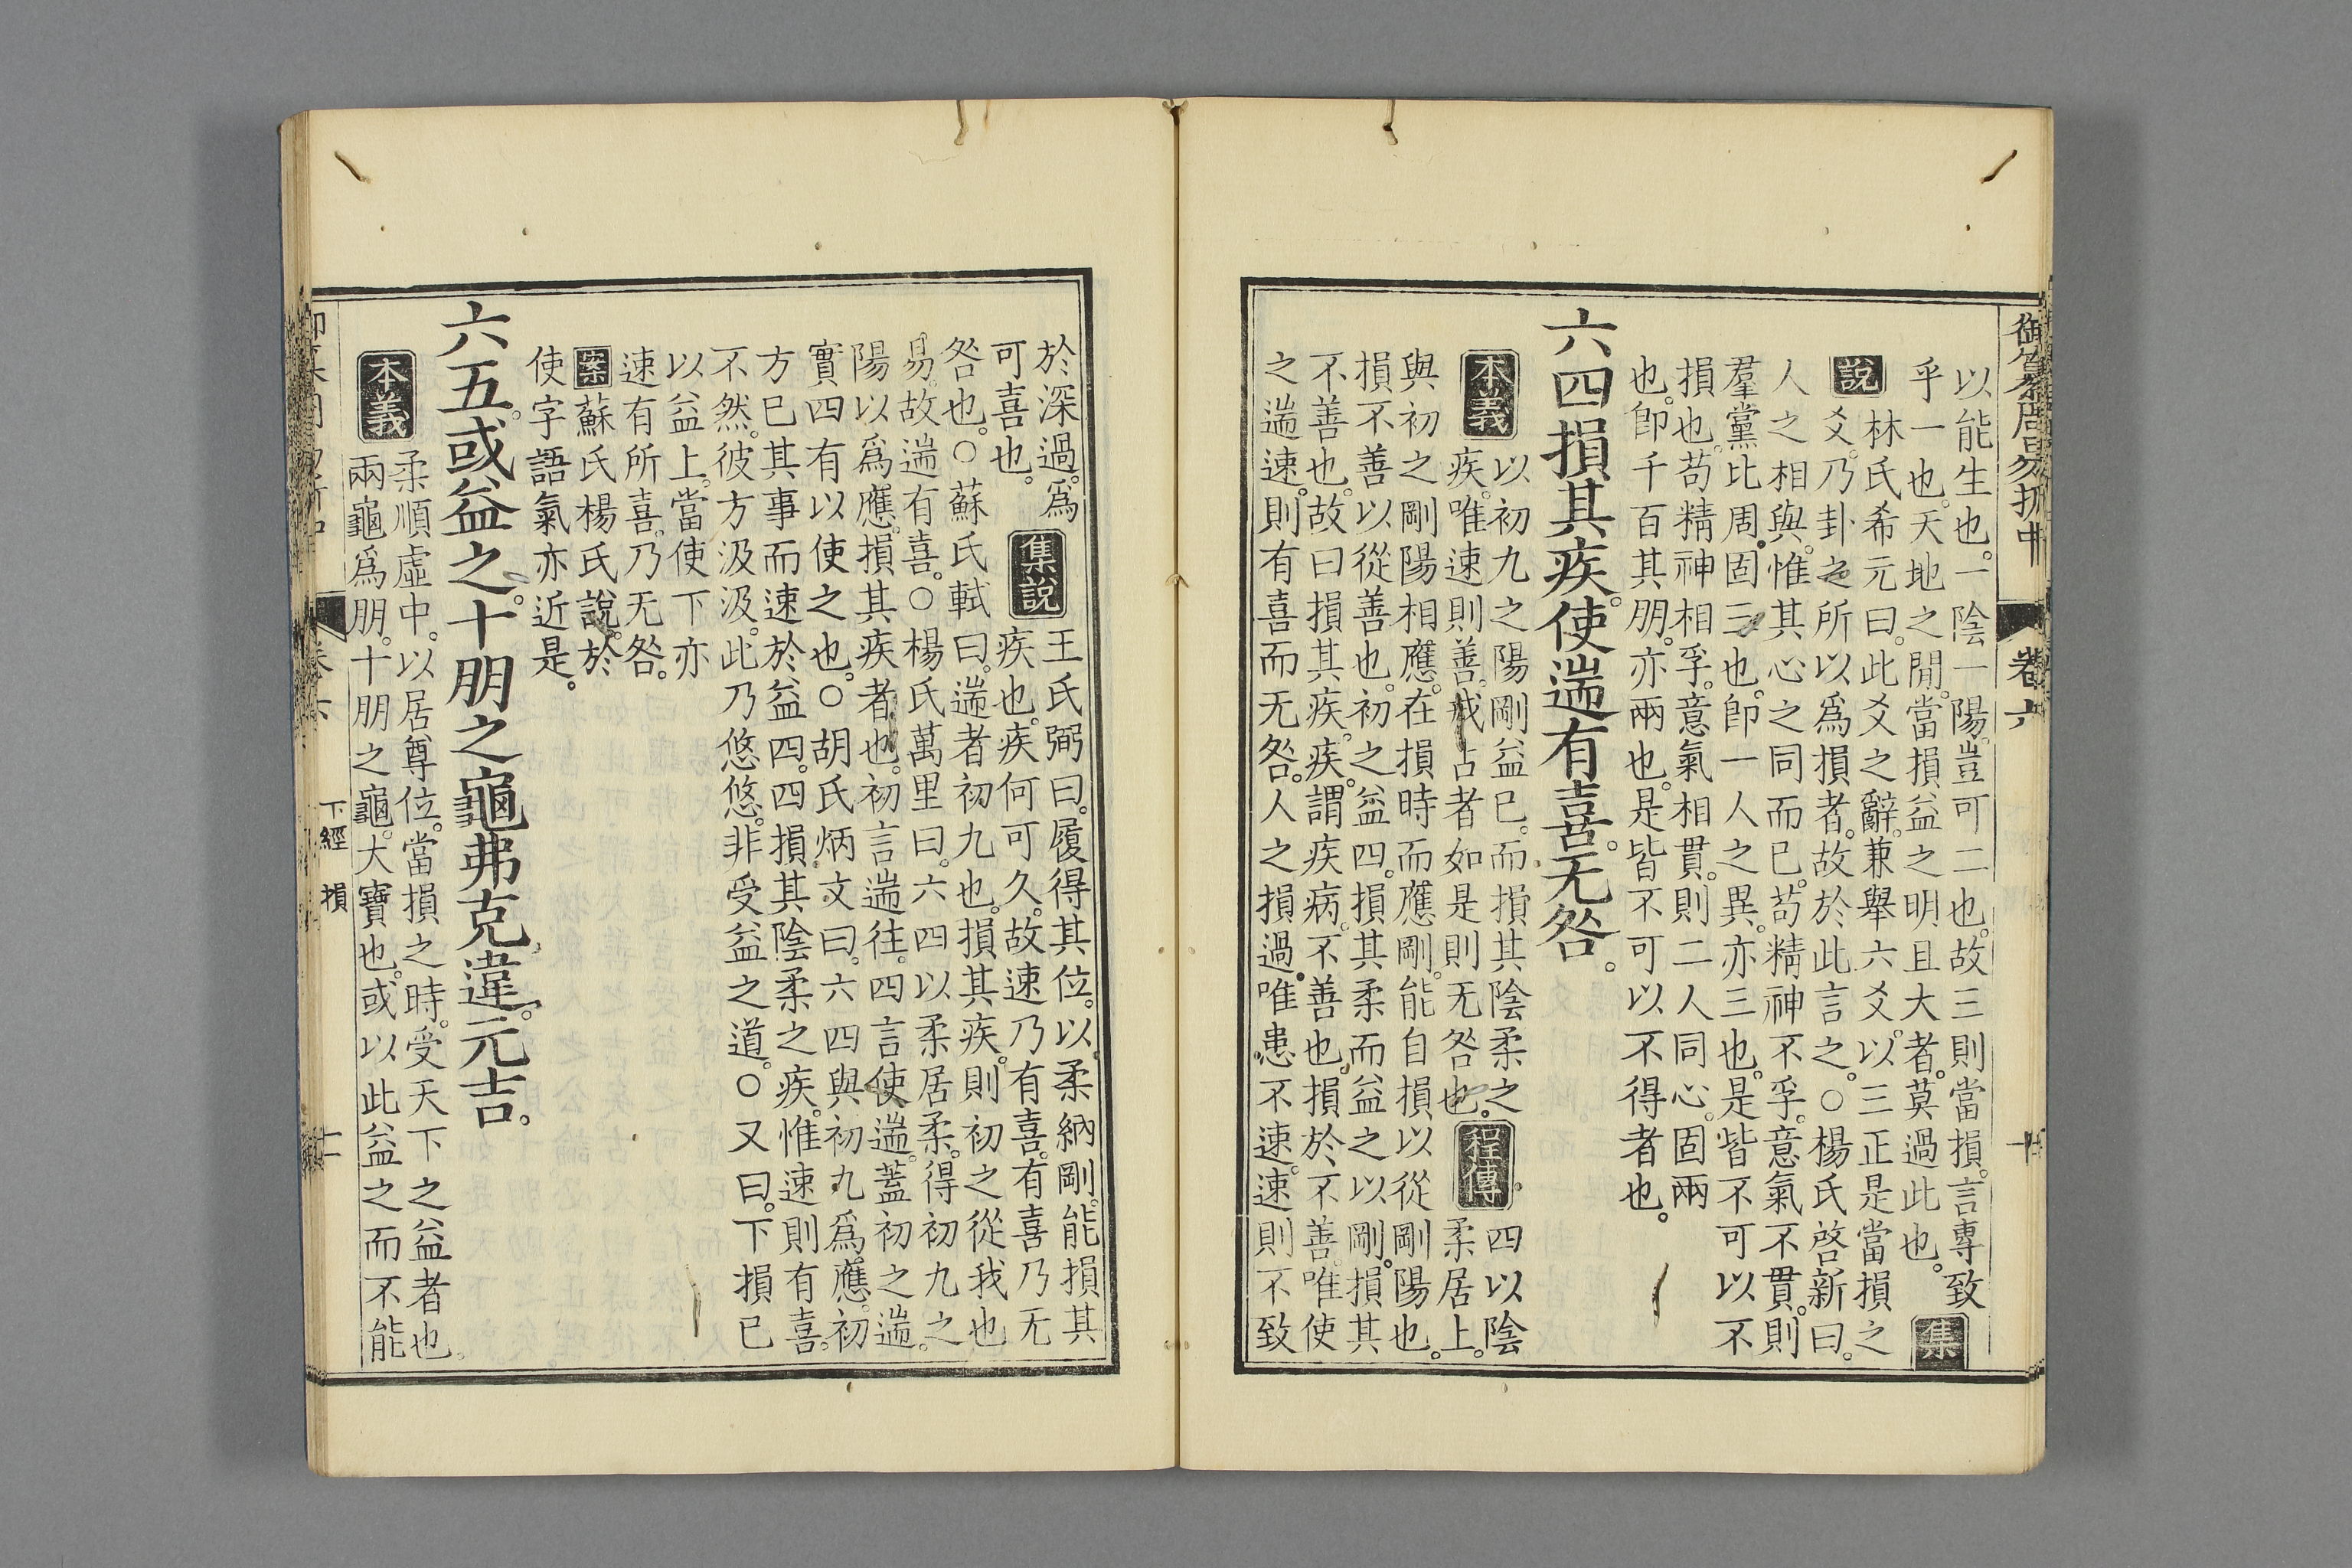 御纂周易折中 卷六 十
以能生也。一陰一陽。豈可二也。故三則當損。言專致
乎一也。天地之閒。當損益之明且大者。莫過此也。集
說 林氏希元曰。此爻之辭。兼舉六爻。以三正是當損之
爻。乃卦之所以爲損者。故於此言之。○楊氏啓新曰。
人之相與。惟其心之同而已。苟精神不孚。意氣不貫。則
羣黨比周。固三也。卽一人之異。亦三也。是皆不可以不
損也。苟精神相孚。意氣相貫。則二人同心。固兩
也。卽千百其朋。亦兩也。是皆不可以不得者也。
六四損其疾。使遄有喜。无咎。
本義 以初九之陽剛益已。而損其陰柔之
疾。唯速則善。戒占者如是則无咎也。
程傳 四以陰
柔居上。
與初之剛陽相應。在損時而應剛。能自損以從剛陽也。
損不善以從善也。初之益四。損其柔而益之以剛。損其
不善也。故曰損其疾。疾。謂疾病。不善也。損於不善。唯使
之遄速。則有喜而无咎。人之損過。唯患不速。速則不致
於深過。爲
可喜也。
集說 王氏弼曰。履得其位。以柔納剛。能損其
疾也。疾何可久。故速乃有喜。有喜乃无
咎也。○蘇氏軾曰。遄者初九也。損其疾。則初之從我也
易。故遄有喜。○楊氏萬里曰。六四以柔居柔。得初九之
陽以爲應。損其疾者也。初言遄往。四言使遄。蓋初之遄。
實四有以使之也。○胡氏炳文曰。六四與初九爲應。初
方巳其事而速於益四。四損其陰柔之疾。惟速則有喜。
不然。彼方汲汲。此乃悠悠。非受益之道。○又曰。下損已
以益上。當使下亦
速有所喜。乃无咎。
案 蘇氏楊氏說。於
使字語氣亦近是。
六五。或益之。十朋之龜弗克違。元吉。
本義 柔順虛中。以居尊位。當損之時。受天下之益者也。
兩龜爲朋。十朋之龜。大寶也。或以此益之而不能
卷六 下經 損 十一